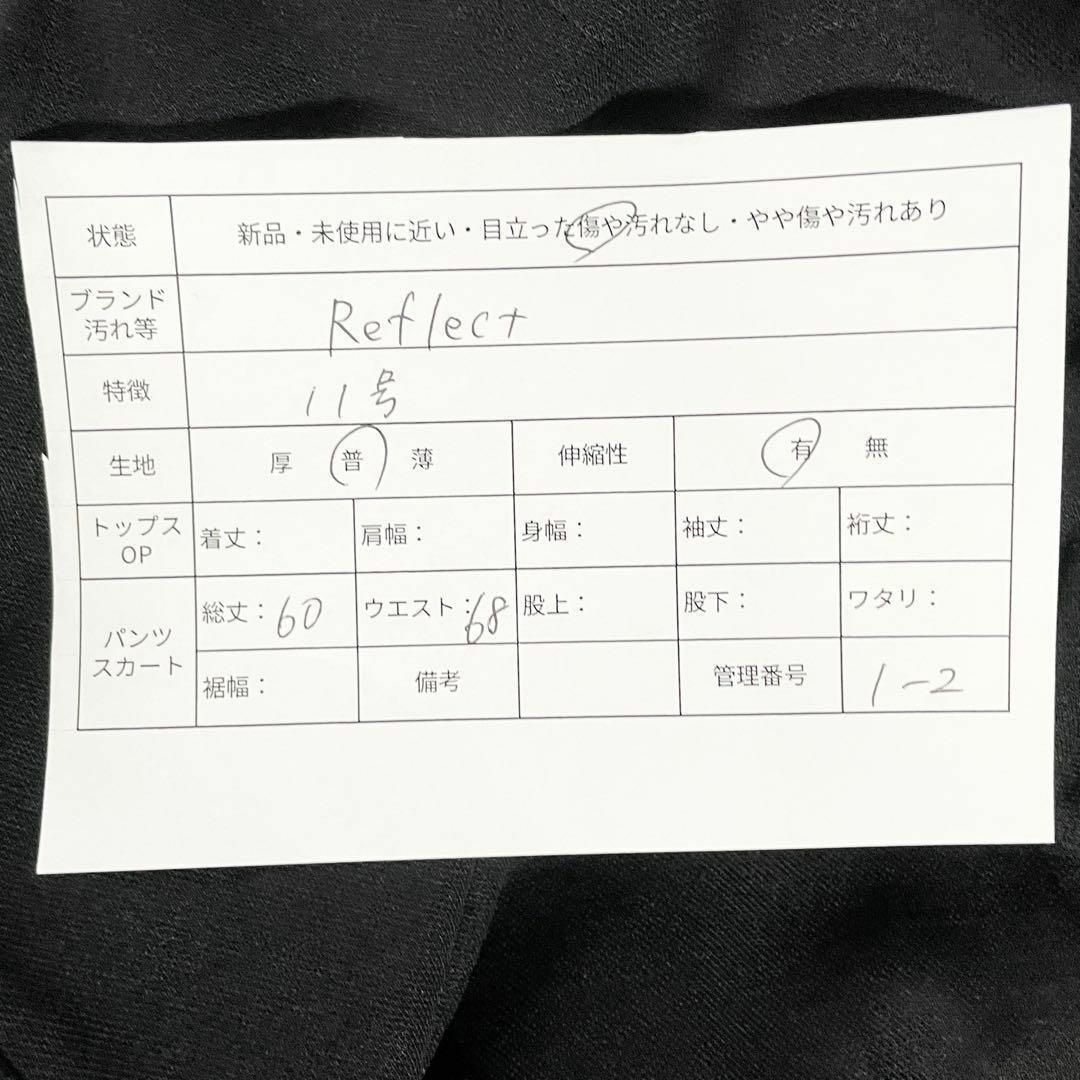 状態 新品・未使用に近い・目立った傷や汚れなし・やや傷や汚れあり
ブランド
汚れ等 Reflect
特徴 11号
生地 厚 普 薄 伸縮性 有 無
トップス
OP 着丈： 肩幅： 身幅： 袖丈： 裄丈：
パンツ
スカート 総丈：60 ウエスト：68 股上： 股下： ワタリ：
裾幅： 備考 管理番号 1-2